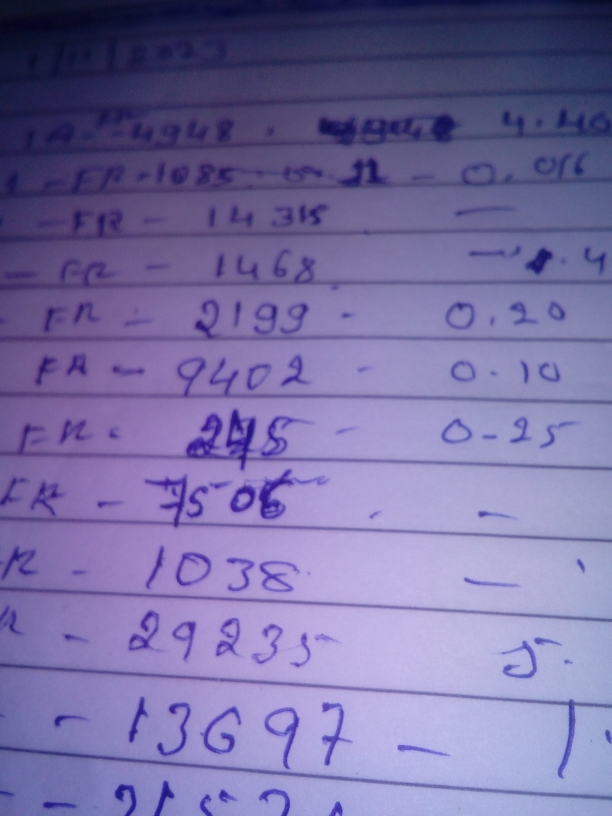 1/11/2023
4948 . 4.40
- FR - 1085 - 0.016
- FR - 14315 —
- FR - 1468 — .4
- FR - 2199 - 0.20
FR - 9402 - 0.10
FR - 0-25
FR - 7506 . -
R - 1038 —
R - 29235 5.
- 13697 - 1